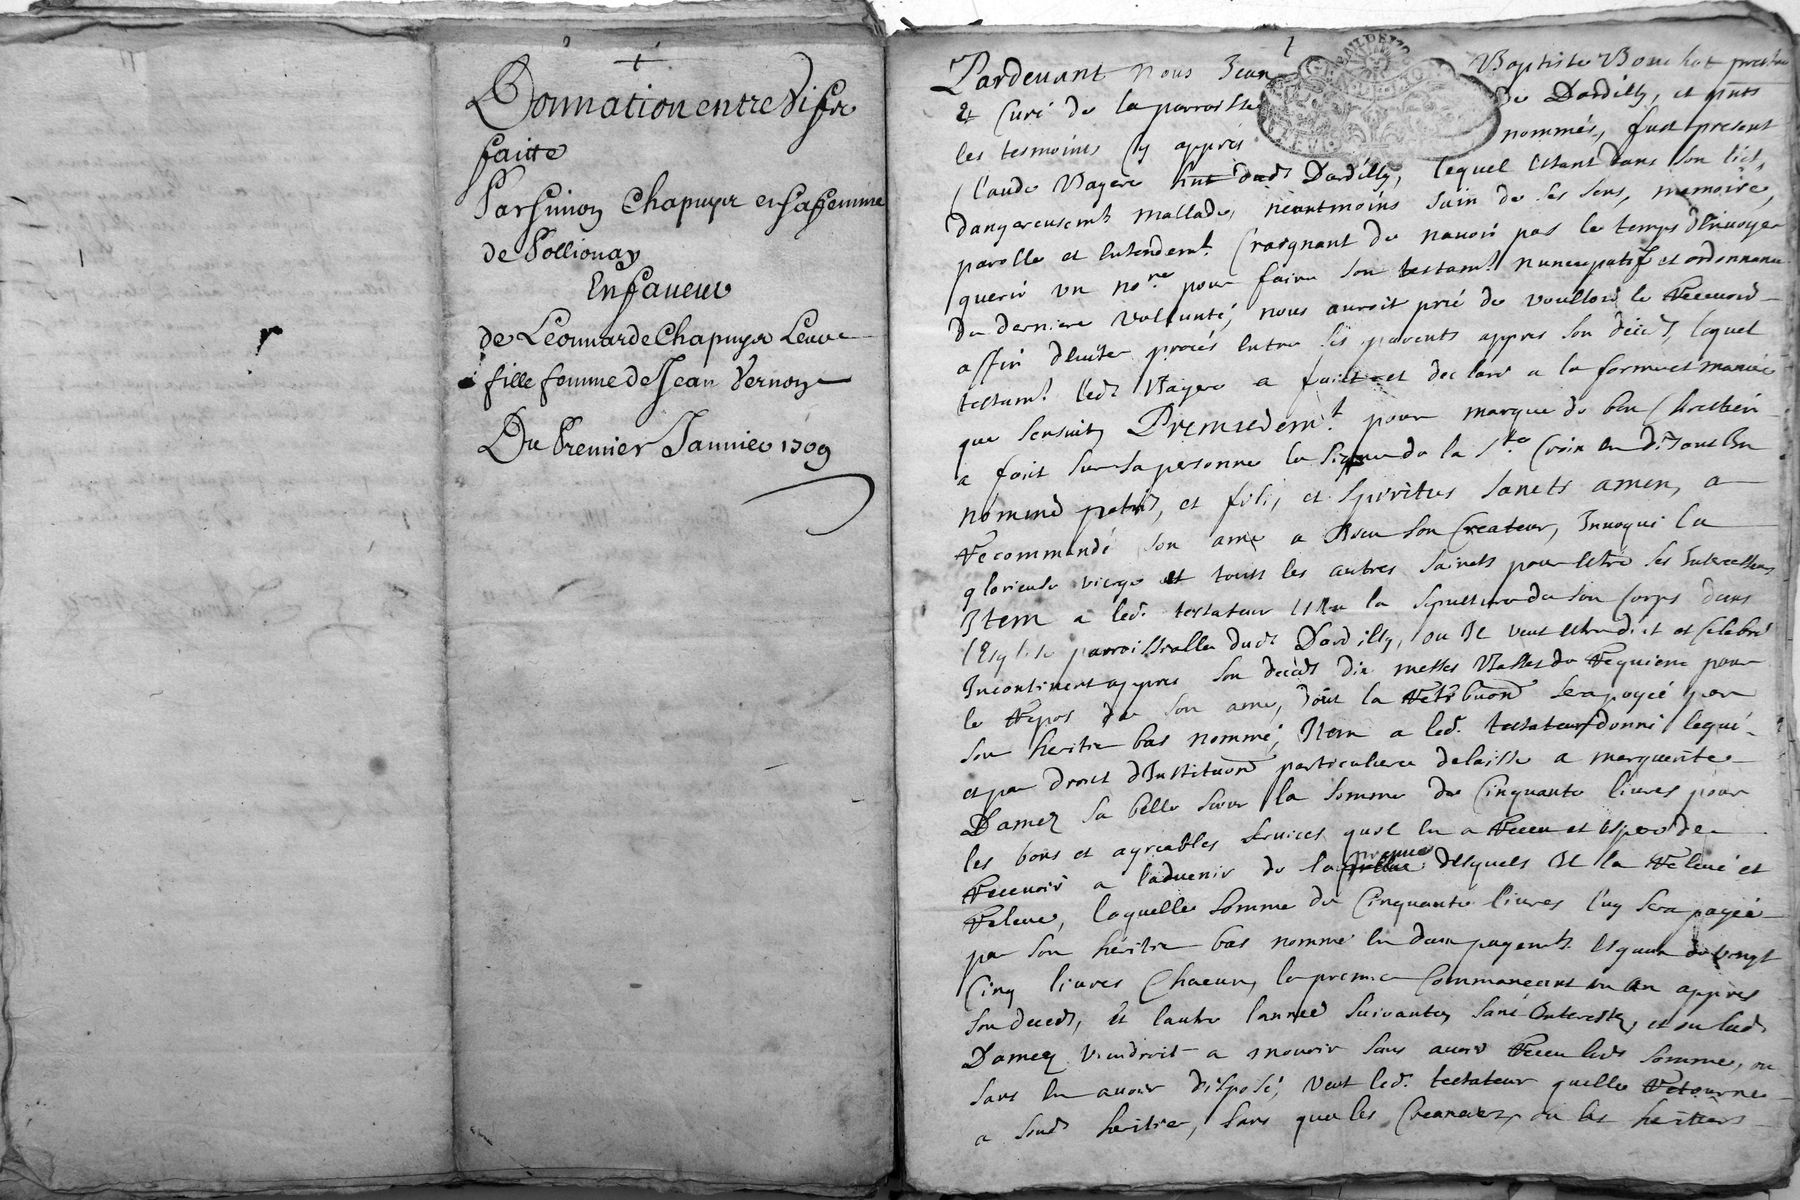 Donnation entre Vifs
faitte
Par Simon Chapuys et sa femme
de Pollionay
En faveur
de Leonnarde Chapuys Leur
fille femme de Jean Vernoy
Du Premier Janvier 1709
Pardevant nous Jean Baptiste Bouchot prestre
et Curé de la parroisse de Dardilly, et puts
les tesmoins cy appres nommés, fust present
Claude Dardilly, lequel Estant dans son lict,
dangereusemt mallade, neantmoins sain de ses sens, memoire,
parolle et Entendemt Craignant de navoir pas le temps d'Envoyer
querir un nore pour faire son testamt nuncupatif et ordonnance
de derniere Vollunté, nous auroit prié de voulloir le Recevoir
affin d'eviter procés Entre ses parents appres son décéd, lequel
testamt led a faict et declaré a la forme et maniere
que sensuit, Premieremt pour marque de bon Chrestien
a fait sur sa personne le signe de la Ste Croix en disant In
nomine patris, et filii, et Spiritus Sancti amen, a
Recommandé son ame a Dieu son Createur, Invoqué la
glorieuse vierge et touts les autres saincts pour Estre ses Intercesseurs
Item a led. testateur Esleu la sepulture de son Corps dans
l'Esglise parroissialle dud Dardilly, ou Il veut Estre dict et Celebré
Incontinent appres son decéds dix messes basses de Requiem pour
le Repos de son ame, dont la Retribuon sera payée par
son heritier bas nommé, Item a led. testateur donné legué
et par droict d'Instituon particuliere delaissé a marguerite
Damez sa belle soeur la somme de Cinquante livres pour
les bons et agreables services quil en a Receu et Espere de
Recevoir a l'advenir de la preuve desquels Il la Relevé et
Releve, laquelle somme de Cinquante livres luy sera payée
par son heritier bas nommé En deux payemts Esgaux de vingt
Cinq livres Chacun, le premier Commanceant un an appres
son deceds, Et lautre lannee suivante, sans Interests, et ou lad
Damez viendroit a mourir sans avoir Receu lad somme, ou
sans En avoir disposé, veut led. testateur quelle Retourne
a sond heritier, sans que les Creanciers ou les heritiers